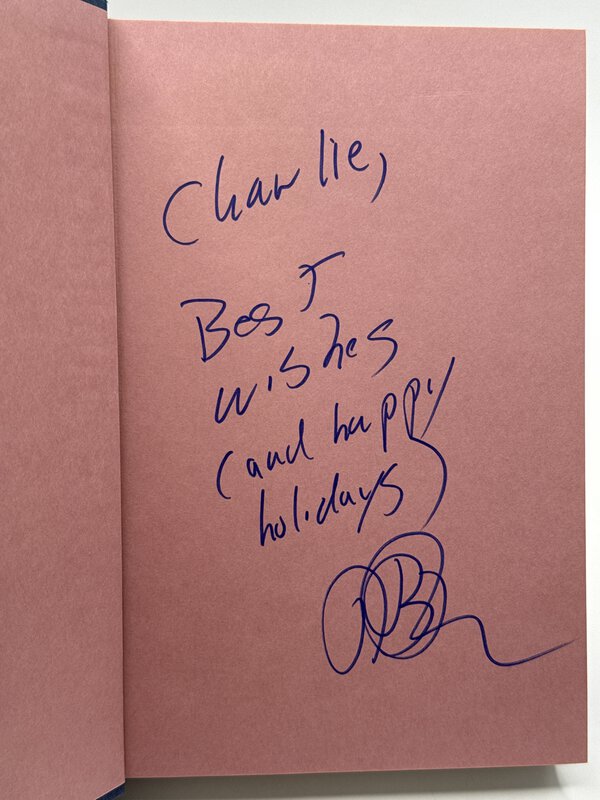 Charlie,
Best
wishes
(and happy
holidays)